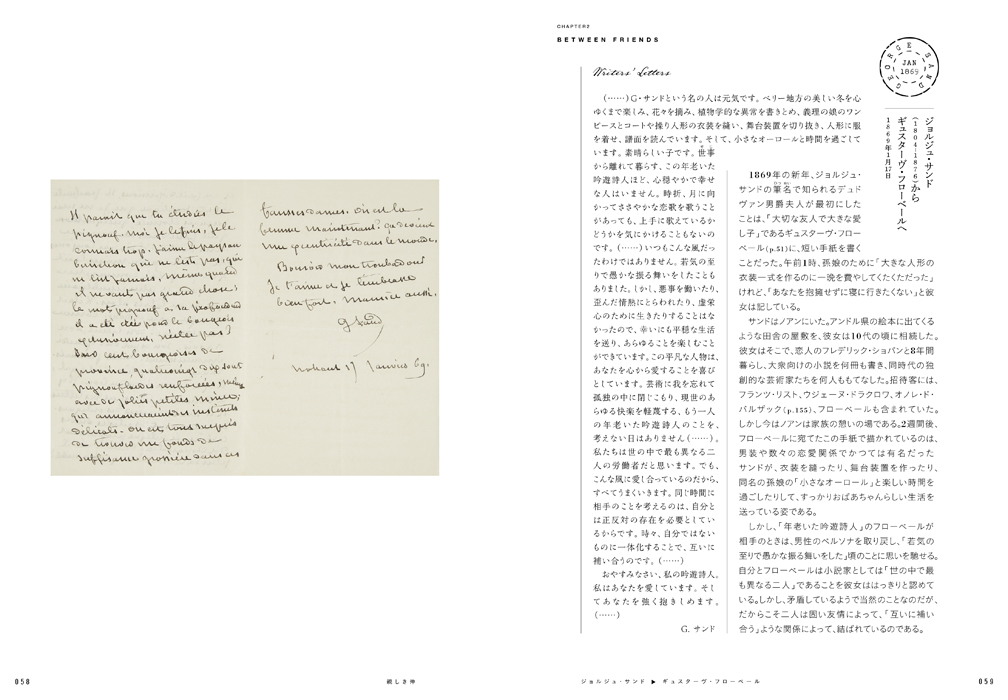 Il parait que tu étudies le
pignouf. Moi je le fuis, je le
connais trop. J'aime le paysan
berrichon qui ne l'est pas, qui
ne l'est jamais, même quand
il ne vaut pas grand chose;
le mot pignouf a sa profondeur
il a été créé pour le bourgeois
exclusivement, n'est ce pas?
Sur cent bourgeoises de
province, quatre vingt dix sont
pignouflardes renforcées, même
avec de jolies petites mines,
qui annonceraient des instincts
délicats. On est tout surpris
de trouver un fonds de
suffisance grossière dans ces
fausses dames. Où est la
femme maintenant? ça devient
une excentricité dans le monde.
Bonsoir mon troubadour
Je t'aime et je t'embrasse
bien fort. Maurice aussi.
G Sand
Nohant 17 Janvier 69.
058
親しき仲
CHAPTER2
BETWEEN FRIENDS
Writers' Letters
(……)G・サンドという名の人は元気です。ベリー地方の美しい冬を心
ゆくまで楽しみ、花々を摘み、植物学的な異常を書きとめ、義理の娘のワン
ピースとコートや操り人形の衣装を縫い、舞台装置を切り抜き、人形に服
を着せ、譜面を読んでいます。そして、小さなオーロールと時間を過ごして
います。素晴らしい子です。世事
から離れて暮らす、この年老いた
吟遊詩人ほど、心穏やかで幸せ
な人はいません。時折、月に向
かってささやかな恋歌を歌うこと
があっても、上手に歌えているか
どうかを気にかけることもないの
です。(……)いつもこんな風だっ
たわけではありません。若気の至
りで愚かな振る舞いをしたことも
ありました。しかし、悪事を働いたり、
歪んだ情熱にとらわれたり、虚栄
心のために生きたりすることはな
かったので、幸いにも平穏な生活
を送り、あらゆることを楽しむこと
ができています。この平凡な人物は、
あなたを心から愛することを喜び
としています。芸術に我を忘れて
孤独の中に閉じこもり、現世のあ
らゆる快楽を軽蔑する、もう一人
の年老いた吟遊詩人のことを、
考えない日はありません(……)。
私たちは世の中で最も異なる二
人の労働者だと思います。でも、
こんな風に愛し合っているのだから、
すべてうまくいきます。同じ時間に
相手のことを考えるのは、自分と
は正反対の存在を必要としてい
るからです。時々、自分ではない
ものに一体化することで、互いに
補い合うのです。(……)
おやすみなさい、私の吟遊詩人。
私はあなたを愛しています。そし
てあなたを強く抱きしめます。
(……)
G. サンド
GEORGE SAND
JAN
1869
ジョルジュ・サンド
(1804-1876)から
ギュスターヴ・フローベールへ
1869年1月17日
1869年の新年、ジョルジュ・
サンドの筆名で知られるデュド
ヴァン男爵夫人が最初にした
ことは、「大切な友人で大きな愛
し子」であるギュスターヴ・フロー
ベール(p.51)に、短い手紙を書く
ことだった。午前1時、孫娘のために「大きな人形の
衣装一式を作るのに一晩を費やしてくたくただった」
けれど、「あなたを抱擁せずに寝に行きたくない」と彼
女は記している。
サンドはノアンにいた。アンドル県の絵本に出てくる
ような田舎の屋敷を、彼女は10代の頃に相続した。
彼女はそこで、恋人のフレデリック・ショパンと8年間
暮らし、大衆向けの小説を何冊も書き、同時代の独
創的な芸術家たちを何人ももてなした。招待客には、
フランツ・リスト、ウジェーヌ・ドラクロワ、オノレ・ド・
バルザック(p.155)、フローベールも含まれていた。
しかし今はノアンは家族の憩いの場である。2週間後、
フローベールに宛てたこの手紙で描かれているのは、
男装や数々の恋愛関係でかつては有名だった
サンドが、衣装を縫ったり、舞台装置を作ったり、
同名の孫娘の「小さなオーロール」と楽しい時間を
過ごしたりして、すっかりおばあちゃんらしい生活を
送っている姿である。
しかし、「年老いた吟遊詩人」のフローベールが
相手のときは、男性のペルソナを取り戻し、「若気の
至りで愚かな振る舞いをした」頃のことに思いを馳せる。
自分とフローベールは小説家としては「世の中で最
も異なる二人」であることを彼女ははっきりと認めて
いる。しかし、矛盾しているようで当然のことなのだが、
だからこそ二人は固い友情によって、「互いに補い
合う」ような関係によって、結ばれているのである。
ジョルジュ・サンド ▶ ギュスターヴ・フローベール
059